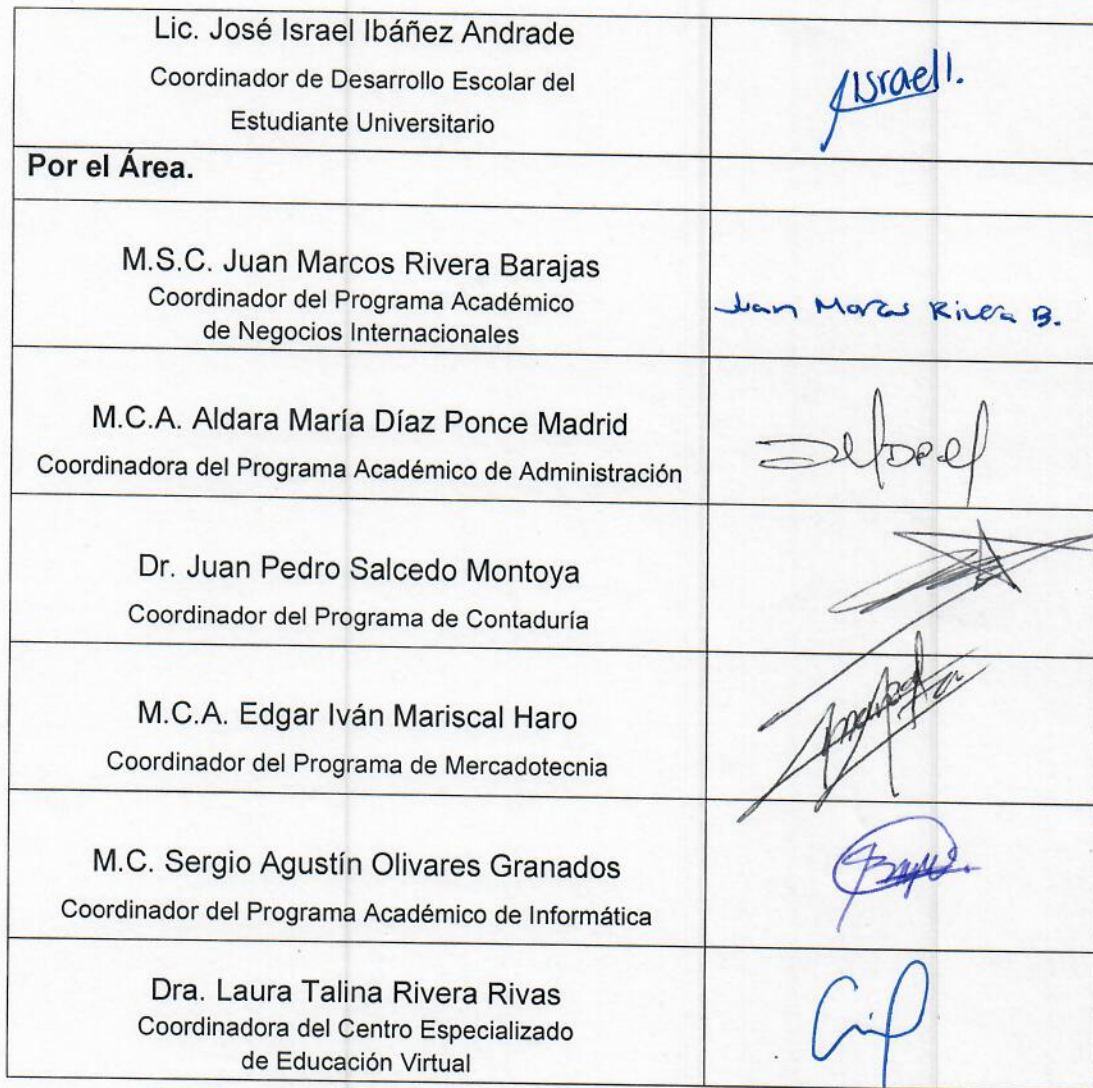 Lic. José Israel Ibáñez Andrade
Coordinador de Desarrollo Escolar del
Estudiante Universitario
Israel I.
Por el Área.
M.S.C. Juan Marcos Rivera Barajas
Coordinador del Programa Académico
de Negocios Internacionales
Juan Marcos Rivera B.
M.C.A. Aldara María Díaz Ponce Madrid
Coordinadora del Programa Académico de Administración
Dr. Juan Pedro Salcedo Montoya
Coordinador del Programa de Contaduría
M.C.A. Edgar Iván Mariscal Haro
Coordinador del Programa de Mercadotecnia
M.C. Sergio Agustín Olivares Granados
Coordinador del Programa Académico de Informática
Dra. Laura Talina Rivera Rivas
Coordinadora del Centro Especializado
de Educación Virtual